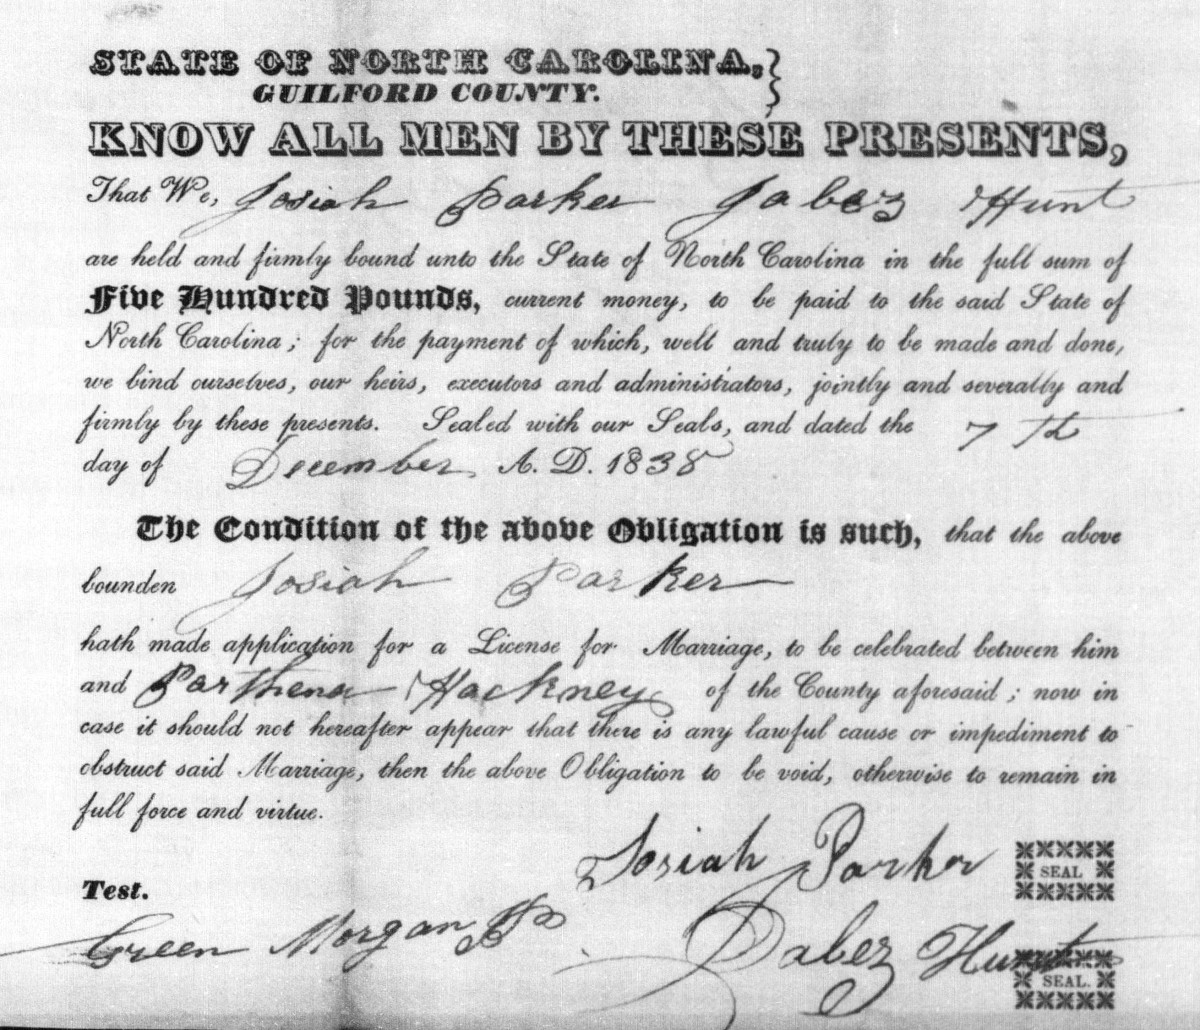 STATE OF NORTH CAROLINA,
GUILFORD COUNTY.
KNOW ALL MEN BY THESE PRESENTS,
That We, Josiah Parker Jabez Hunt
are held and firmly bound unto the State of North Carolina in the full sum of
Five Hundred Pounds, current money, to be paid to the said State of
North Carolina; for the payment of which, well and truly to be made and done,
we bind ourselves, our heirs, executors and administrators, jointly and severally and
firmly by these presents. Sealed with our Seals, and dated the 7th
day of December A. D. 1838
The Condition of the above Obligation is such, that the above
bounden Josiah Parker
hath made application for a License for Marriage, to be celebrated between him
and Parthena Hackney of the County aforesaid; now in
case it should not hereafter appear that there is any lawful cause or impediment to
obstruct said Marriage, then the above Obligation to be void, otherwise to remain in
full force and virtue.
Josiah Parker SEAL
Test.
Green Morgan
Jabez Hunt SEAL.